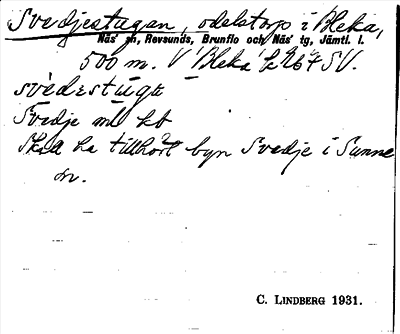 Svedjestugan, odelstorp i Bleka,
Näs sn, Revsunds, Brunflo och Näs tg, Jämtl. l.
500 m. V Bleka SV.
svedestuga
Svedje ml kb
Skall ha tillhört byn Svedje i Sunne
sn.
C. LINDBERG 1931.